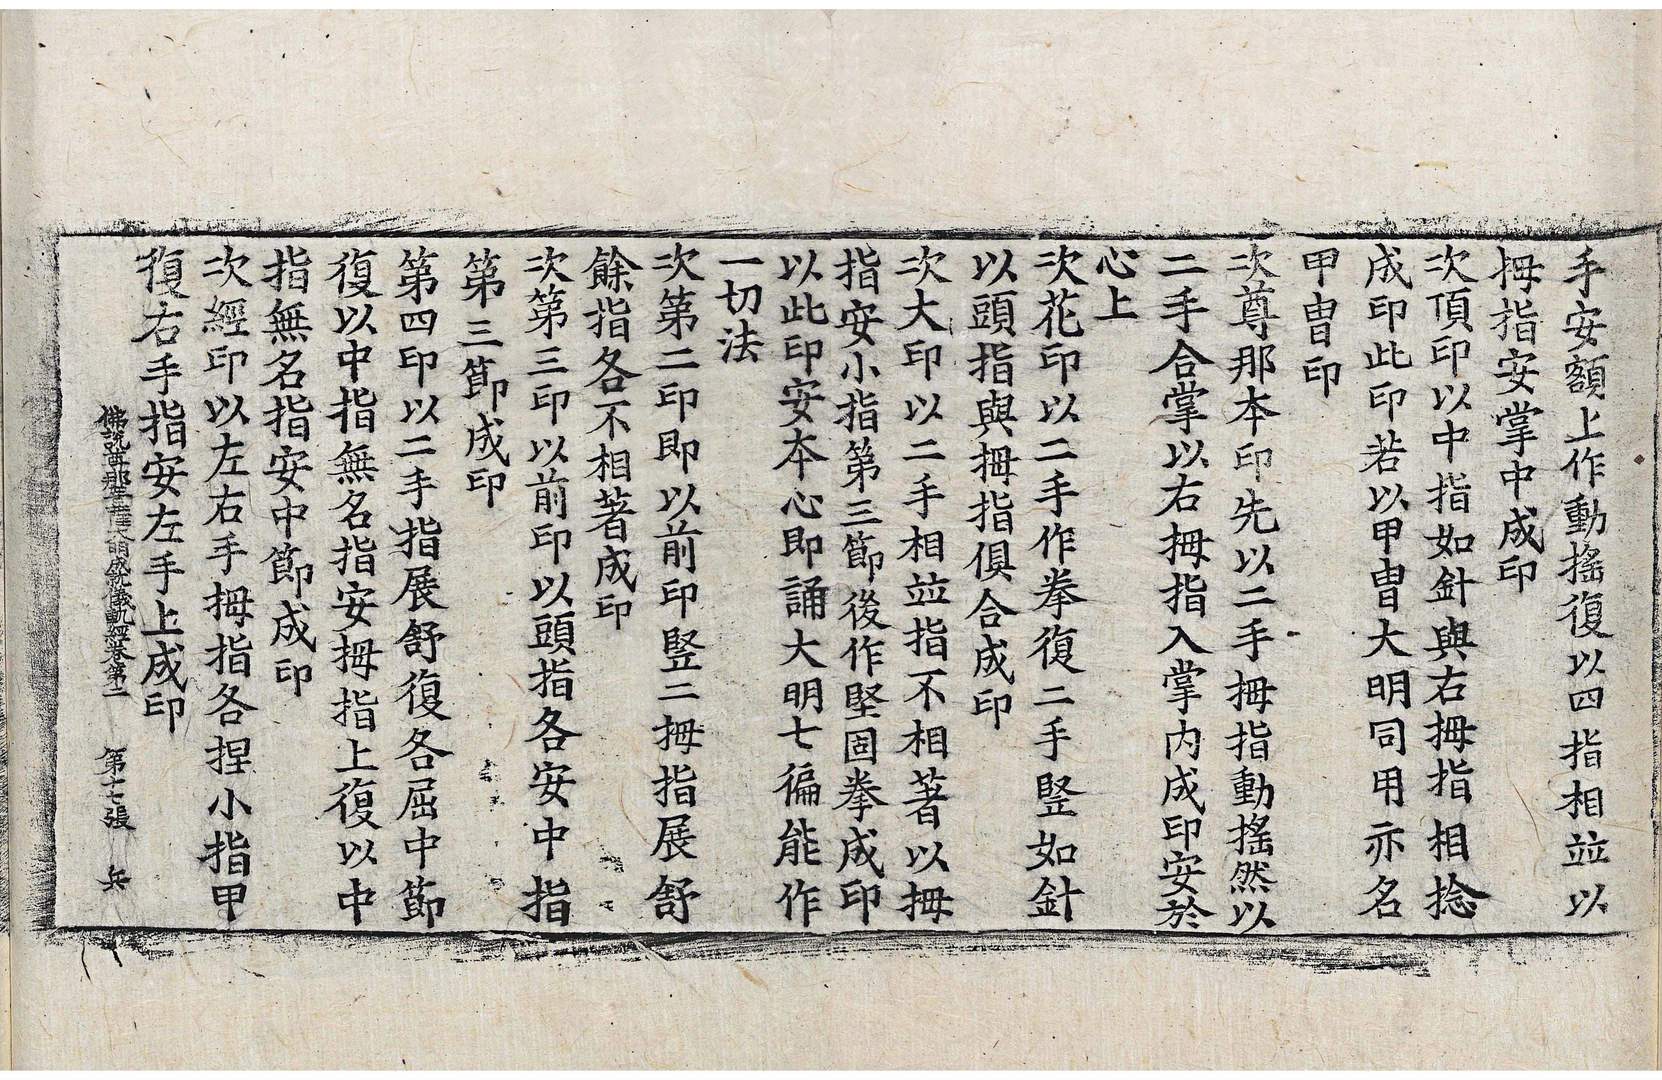 手安額上作動搖復以四指相並以
拇指安掌中成印
次頂印以中指如針與右拇指相捻
成印此印若以甲冑大明同用亦名
甲冑印
次尊那本印先以二手拇指動搖然以
二手合掌以右拇指入掌內成印安於
心上
次花印以二手作拳復二手竪如針
以頭指與拇指俱合成印
次大印以二手相並指不相著以拇
指安小指第三節後作堅固拳成印
以此印安本心即誦大明七徧能作
一切法
次第二印即以前印竪二拇指展舒
餘指各不相著成印
次第三印以前印以頭指各安中指
第三節成印
第四印以二手指展舒復各屈中節
復以中指無名指安拇指上復以中
指無名指安中節成印
次經印以左右手拇指各捏小指甲
復右手指安左手上成印
佛說尊那菩薩大明成就儀軌經卷第二 第十七張 兵